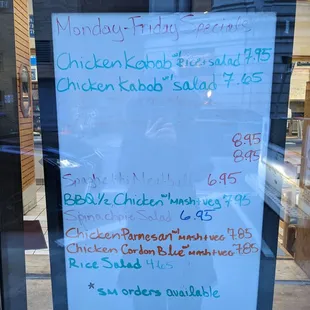 Monday-Friday Specials
Chicken Kabob w/ Rice & salad 7.95
Chicken Kabob w/ salad 7.65
8.95
8.95
Spaghetti Meatball 6.95
BBQ 1/2 Chicken w/ Mash+veg 7.95
Spinach Salad 6.95
Chicken Parmesan w/ Mash+veg 7.85
Chicken Cordon Blue w/ Mash+veg 7.85
Rice Salad 4.65
*sm orders available